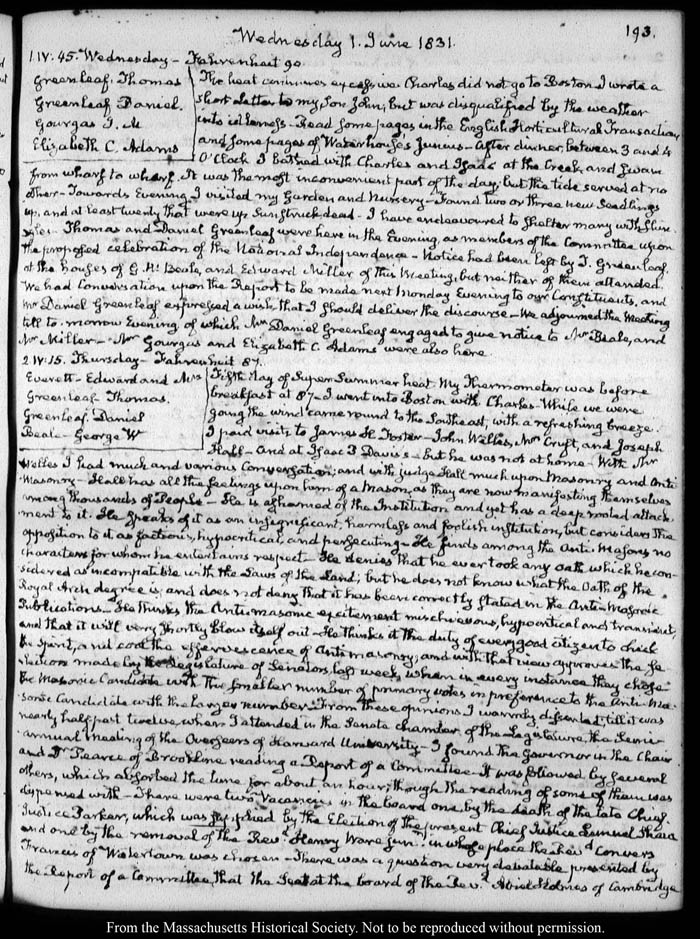 193.
Wednesday 1. June 1831.
1. IV: 45. Wednesday - Fahrenheit 90.
Greenleaf. Thomas
Greenleaf Daniel.
Gourgas J. M
Elizabeth C. Adams
The heat continues excessive. Charles did not go to Boston I wrote a
short Letter to my Son John, but was disqualified by the weather
into idleness - Read some pages in the English Horticultural Transactions,
and some pages of Waterhouse's Junius - After dinner, between 3 and 4
O'Clock I bathed with Charles and Isaac at the Creek, and swam
from wharf to wharf. It was the most inconvenient part of the day; but the tide served at no
other - Towards Evening I visited my Garden and Nursery - Found two or three new Seedlings
up, and at least twenty that were up Sunstruck dead - I have endeavoured to shelter many with
Thomas and Daniel Greenleaf were here in the Evening, as members of the Committee upon
the proposed celebration of the National Independence - Notice had been left by T. Greenleaf.
at the houses of G. W. Beale, and Edward Miller of this Meeting, but neither of them attended.
We had Conversation upon the Report to be made next Monday Evening to our Constituents, and
Mr Daniel Greenleaf expressed a wish that I should deliver the discourse - We adjourned the Meeting
till to-morrow Evening of which Mr Daniel Greenleaf engaged to give notice to Mr Beale, and
Mr Miller - Mr Gourgas and Elizabeth C. Adams were also here.
2. IV: 15. Thursday - Fahrenheit 87.
Everett - Edward and Mrs
Greenleaf - Thomas.
Greenleaf Daniel
Beale - George W
Fifth day of Super Summer heat. My Thermometer was before
breakfast at 87 - I went into Boston with Charles - While we were
going the wind came round to the Southeast, with a refreshing breeze.
I paid visits to James H. Foster - John Welles, Mrs Cruft, and Joseph
Hall - And at Isaac P Davis's - but he was not at home - With Mr
Welles I had much and various Conversation; and with judge Hall much upon Masonry and Anti
Masonry - Hall has all the feelings upon him of a Mason, as they are now manifesting themselves
among thousands of People - He is ashamed of the Institution and yet has a deep rooted attach-
ment to it. He speaks of it as an insignificant, harmless and foolish institution, but considers the
opposition to it as factious, hypocritical, and persecuting - He finds among the Anti-Masons no
characters for whom he entertains respect - He denies that he ever took any oath which he con-
sidered as incompatible with the Laws of the Land; but he does not know what the Oath of the
Royal Arch degree is, and does not deny that it has been correctly stated in the Anti-Masonic
Publications - He thinks the Antimasonic excitement mischievous, hypocritical and transient,
and that it will very shortly blow itself out - He thinks it the duty of every good citizen to check
the Spirit, and cool the effervescence of Antimasonry; and with that view approves the se-
lections made by the Legislature of Senators, last week, wherein in every instance they chose
the Masonic Candidate with the smaller number of primary votes, in preference to the Anti-Ma-
sonic Candidate with the larger number - From these opinions I warmly dissented, till it was
nearly half past twelve, when I attended in the Senate chamber of the Legislature, the Semi-
annual Meeting of the Overseers of Harvard University - I found the Governor in the Chair
and Dr Pearce of Brookline reading a Report of a Committee - It was followed by several
others, which absorbed the time for about an hour; though the reading of some of them was
dispensed with - There were two vacancies in the board one by the death of the late Chief-
Justice Parker, which was supplied by the Election of the present Chief Justice Lemuel Shaw
and one by the removal of the Revd Henry Ware Junr. in whose place the Revd Convers
Francis of Watertown was chosen - There was a question very debatable presented by
the Report of a Committee, that the Seat at the board of the Revd Abiel Holmes of Cambridge
From the Massachusetts Historical Society. Not to be reproduced without permission.